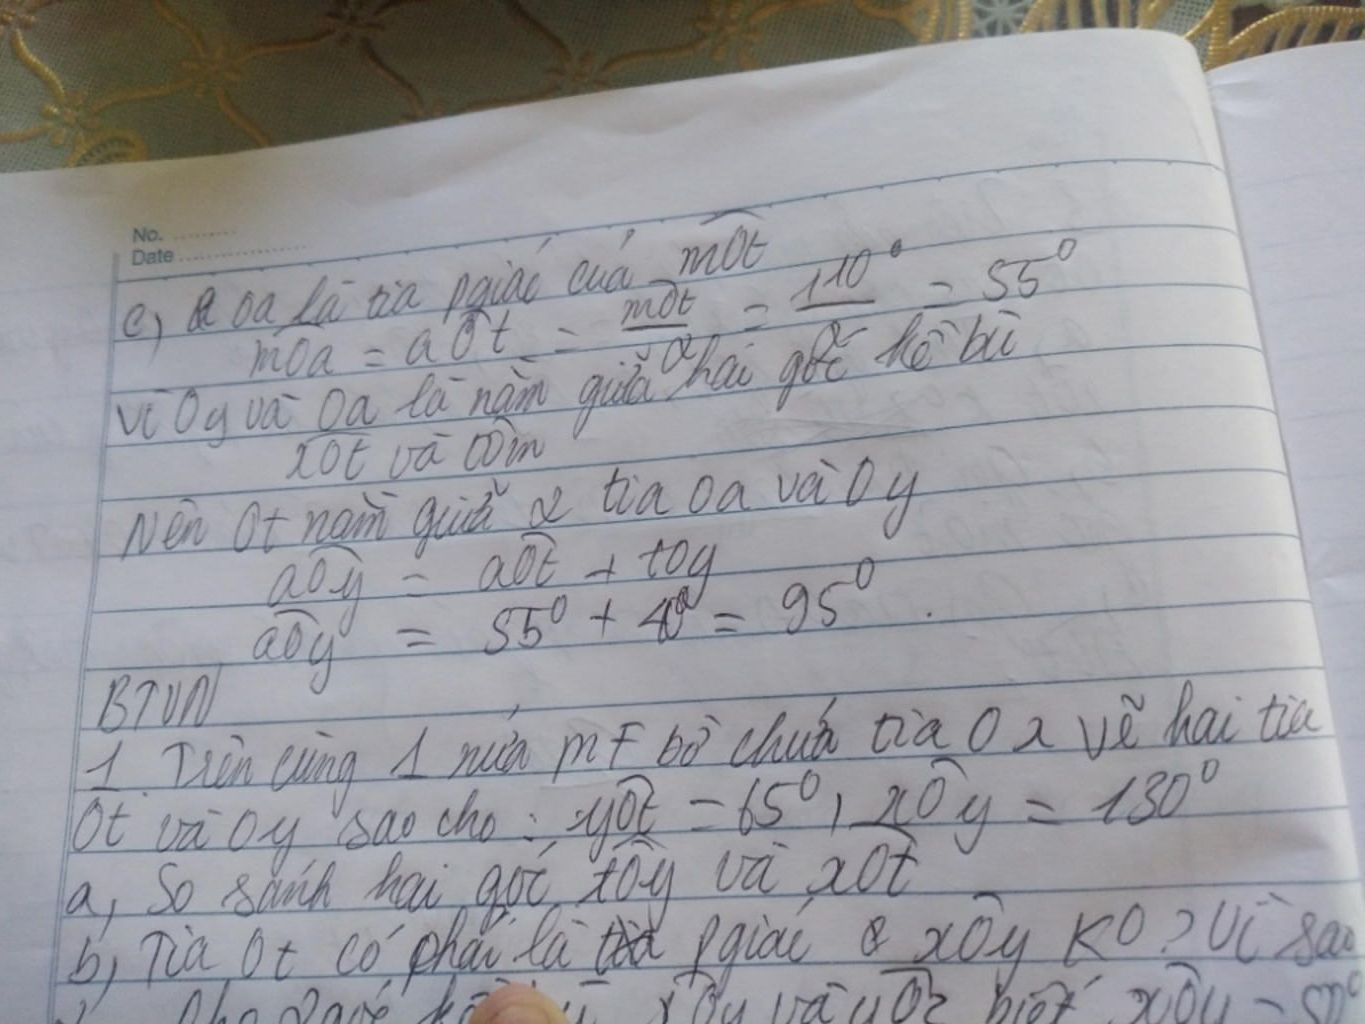 No. ........
Date ................
c, Oa là tia pgiác của mOt
mOa = aOt = mOt/2 = 110°/2 = 55°
Vì Oy và Oa là nằm giữa hai góc kề bù
xOt và tOm
Nên Ot nằm giữa 2 tia Oa và Oy
aOy = aOt + tOy
aOy = 55° + 40° = 95° .
BTVN
1. Trên cùng 1 nửa mF bờ chứa tia Ox vẽ hai tia
Ot và Oy sao cho : yOt = 65°, xOy = 130°
a, So sánh hai góc tOy và xOt
b, Tia Ot có phải là tia pgiác xOy KO ? Vì sao
góc xOy và yOz biết xOy = 50°